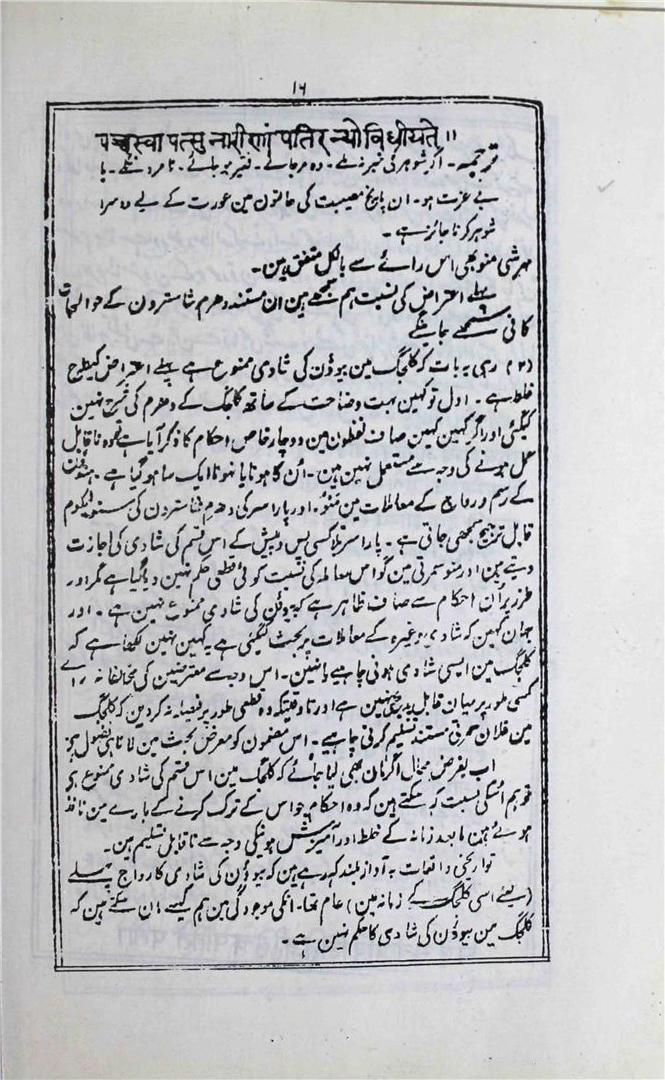 ۱۶
पञ्चस्वा पत्सु नारीणां पतिर न्यो विधीयते॥
ترجمہ۔ اگر شوہر کی خبر نہ ملے۔ وہ مر جائے۔ فقیر ہو جائے۔ نامرد نکلے۔ یا
بے عزت ہو۔ ان پانچ مصیبت کی حالتون مین عورت کے لیے دوسرا
شوہر کرنا جائز ہے۔
مہرشی منو بھی اس رائے سے بالکل متفق ہین۔
پہلے اعتراض کی نسبت ہم سمجھتے ہین ان مستند دھرم شاسترون کے حوالجات
کافی سمجھے جائینگے
(۲) رہی یہ بات کہ کلجگ مین بیوؤن کی شادی ممنوع ہے پہلے اعتراض کیطرح
غلط ہے۔ اول تو کہین بہت وضاحت کے ساتھ کلجگ کے دھرم کی شرح نہین
کیگئی اور اگر کہین کہین صاف لفظون مین دو چار خاص احکام کا ذکر آیا ہے تو وہ ناقابل
عمل ہونے کی وجہ سے مستعمل نہین ہین۔ اُن کا ہونا یا نہونا ایک سا ہو گیا ہے۔
کے رسم و رواج کے معاملات مین منو۔ اور پاراسر کی دھرم شاسترون کی
قابل ترجیح سمجھی جاتی ہے۔ پاراسر بلا کسی پس و پیش کے اس قسم کی شادی کی اجازت
دیتے ہین اور منو سمرتی مین گو اس معاملہ کی نسبت کوئی قطعی حکم نہین دیا گیا ہے مگر اور
طرز پر اُن احکام سے صاف ظاہر ہے کہ بیوؤن کی شادی ممنوع نہین ہے۔ اور
جہان کہین کہ شادی وغیرہ کے معاملات پر بحث کیگئی ہے یہ کہین نہین لکھا ہے کہ
کلجگ مین ایسی شادی ہونی چاہیے یا نہین۔ اس وجہ سے معترضین کی مخالفانہ رائے
کسی طور پر میان قابل پذیرائی نہین ہے اور تا وقتیکہ وہ قطعی طور پر فیصلہ نہ کردین کہ کلجگ
مین فلان سمرتی مستند تسلیم کرنی چاہیے۔ اس مضمون کو معرض بحث مین لانا ہی فضول ہے
اب بفرض محال اگر مان بھی لیا جائے کہ کلجگ مین اس قسم کی شادی ممنوع ہے
تو ہم اسکی نسبت کہہ سکتے ہین کہ وہ احکام جو اس کے ترک کرنے کے بارے مین نافذ
ہوئے ہین ما بعد زمانہ کے خلط اور آمیزش ہونیکی وجہ سے ناقابل تسلیم ہین۔
تواریخی واقعات بہ آواز بلند کہہ رہے ہین کہ بیوؤن کی شادی کا رواج پہلے
(یعنے اسی کلجگ کے زمانہ مین) عام تھا۔ انکی موجودگی مین ہم کیسے مان سکتے ہین کہ
کلجگ مین بیوؤن کی شادی کا حکم نہین ہے۔